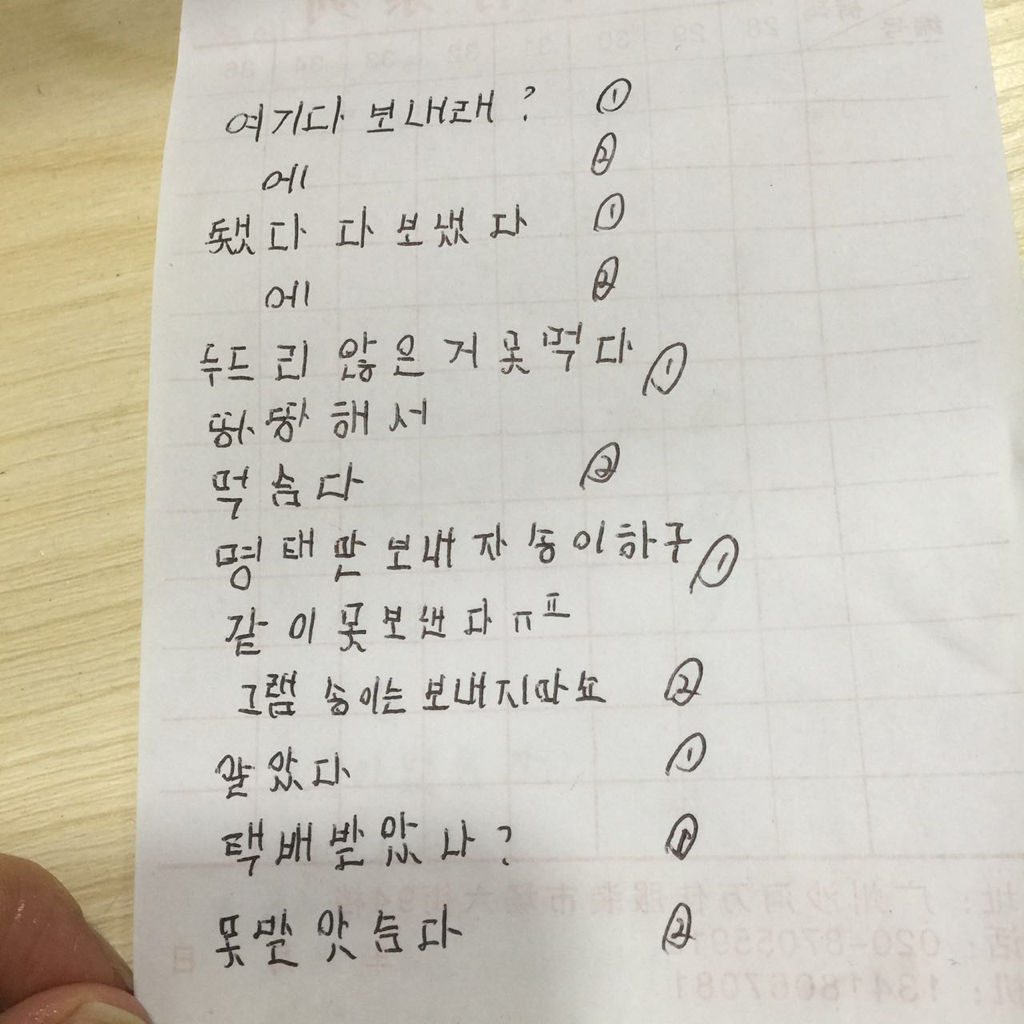 여기다 보내래 ? ①
에 ②
됐다 다 보냈다 ①
에 ②
두드리 않은거 못먹다 ①
땅땅해서
먹슴다 ②
명태만보내자 송이하구 ①
같이 못보낸다 ㅠㅠ
그램 송이는 보내지마요 ②
알았다 ①
택배 받았나 ? ①
못받앗슴다 ②